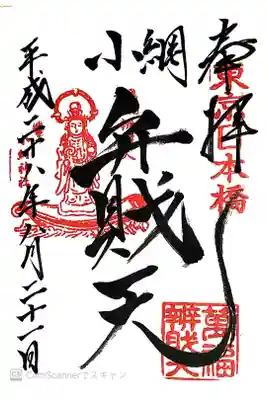 奉拝
東京日本橋
小網
弁財天
萬福
辨財天
平成二十八年六月二十一日
CamScannerでスキャン